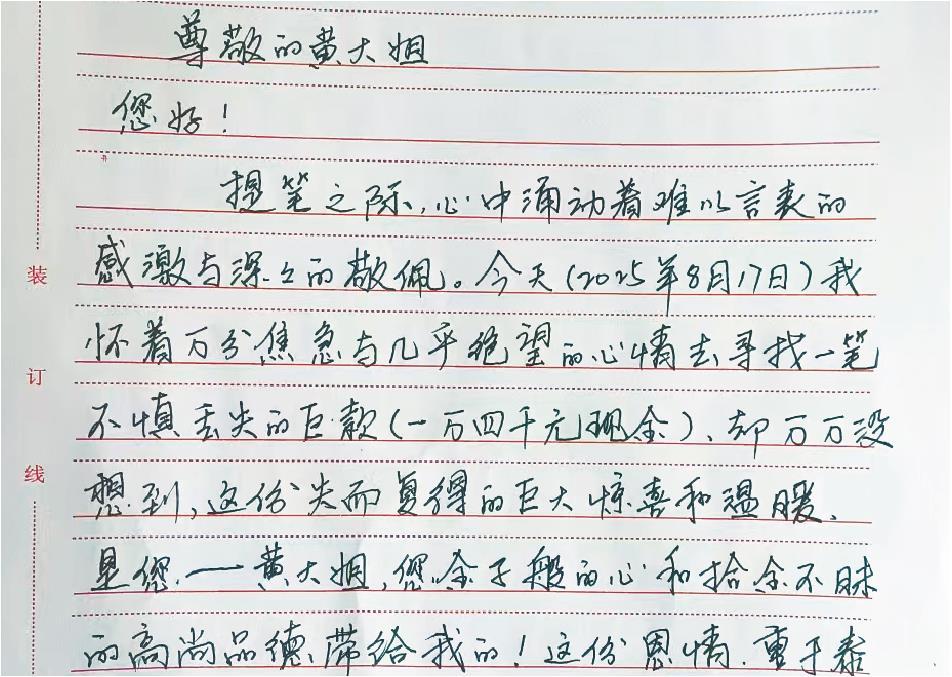 尊敬的黄大姐
您好!
提笔之际,心中涌动着难以言表的
感激与深深的敬佩。今天(2025年8月17日)我
怀着万分焦急与几乎绝望的心情去寻找一笔
不慎丢失的巨款(一万四千元现金)、却万万没
想到,这份失而复得的巨大惊喜和温暖、
是您、一黄大姐,您金子般的心和拾金不昧
的高尚品德、带给我的!这份恩情、重于泰
装
订
线